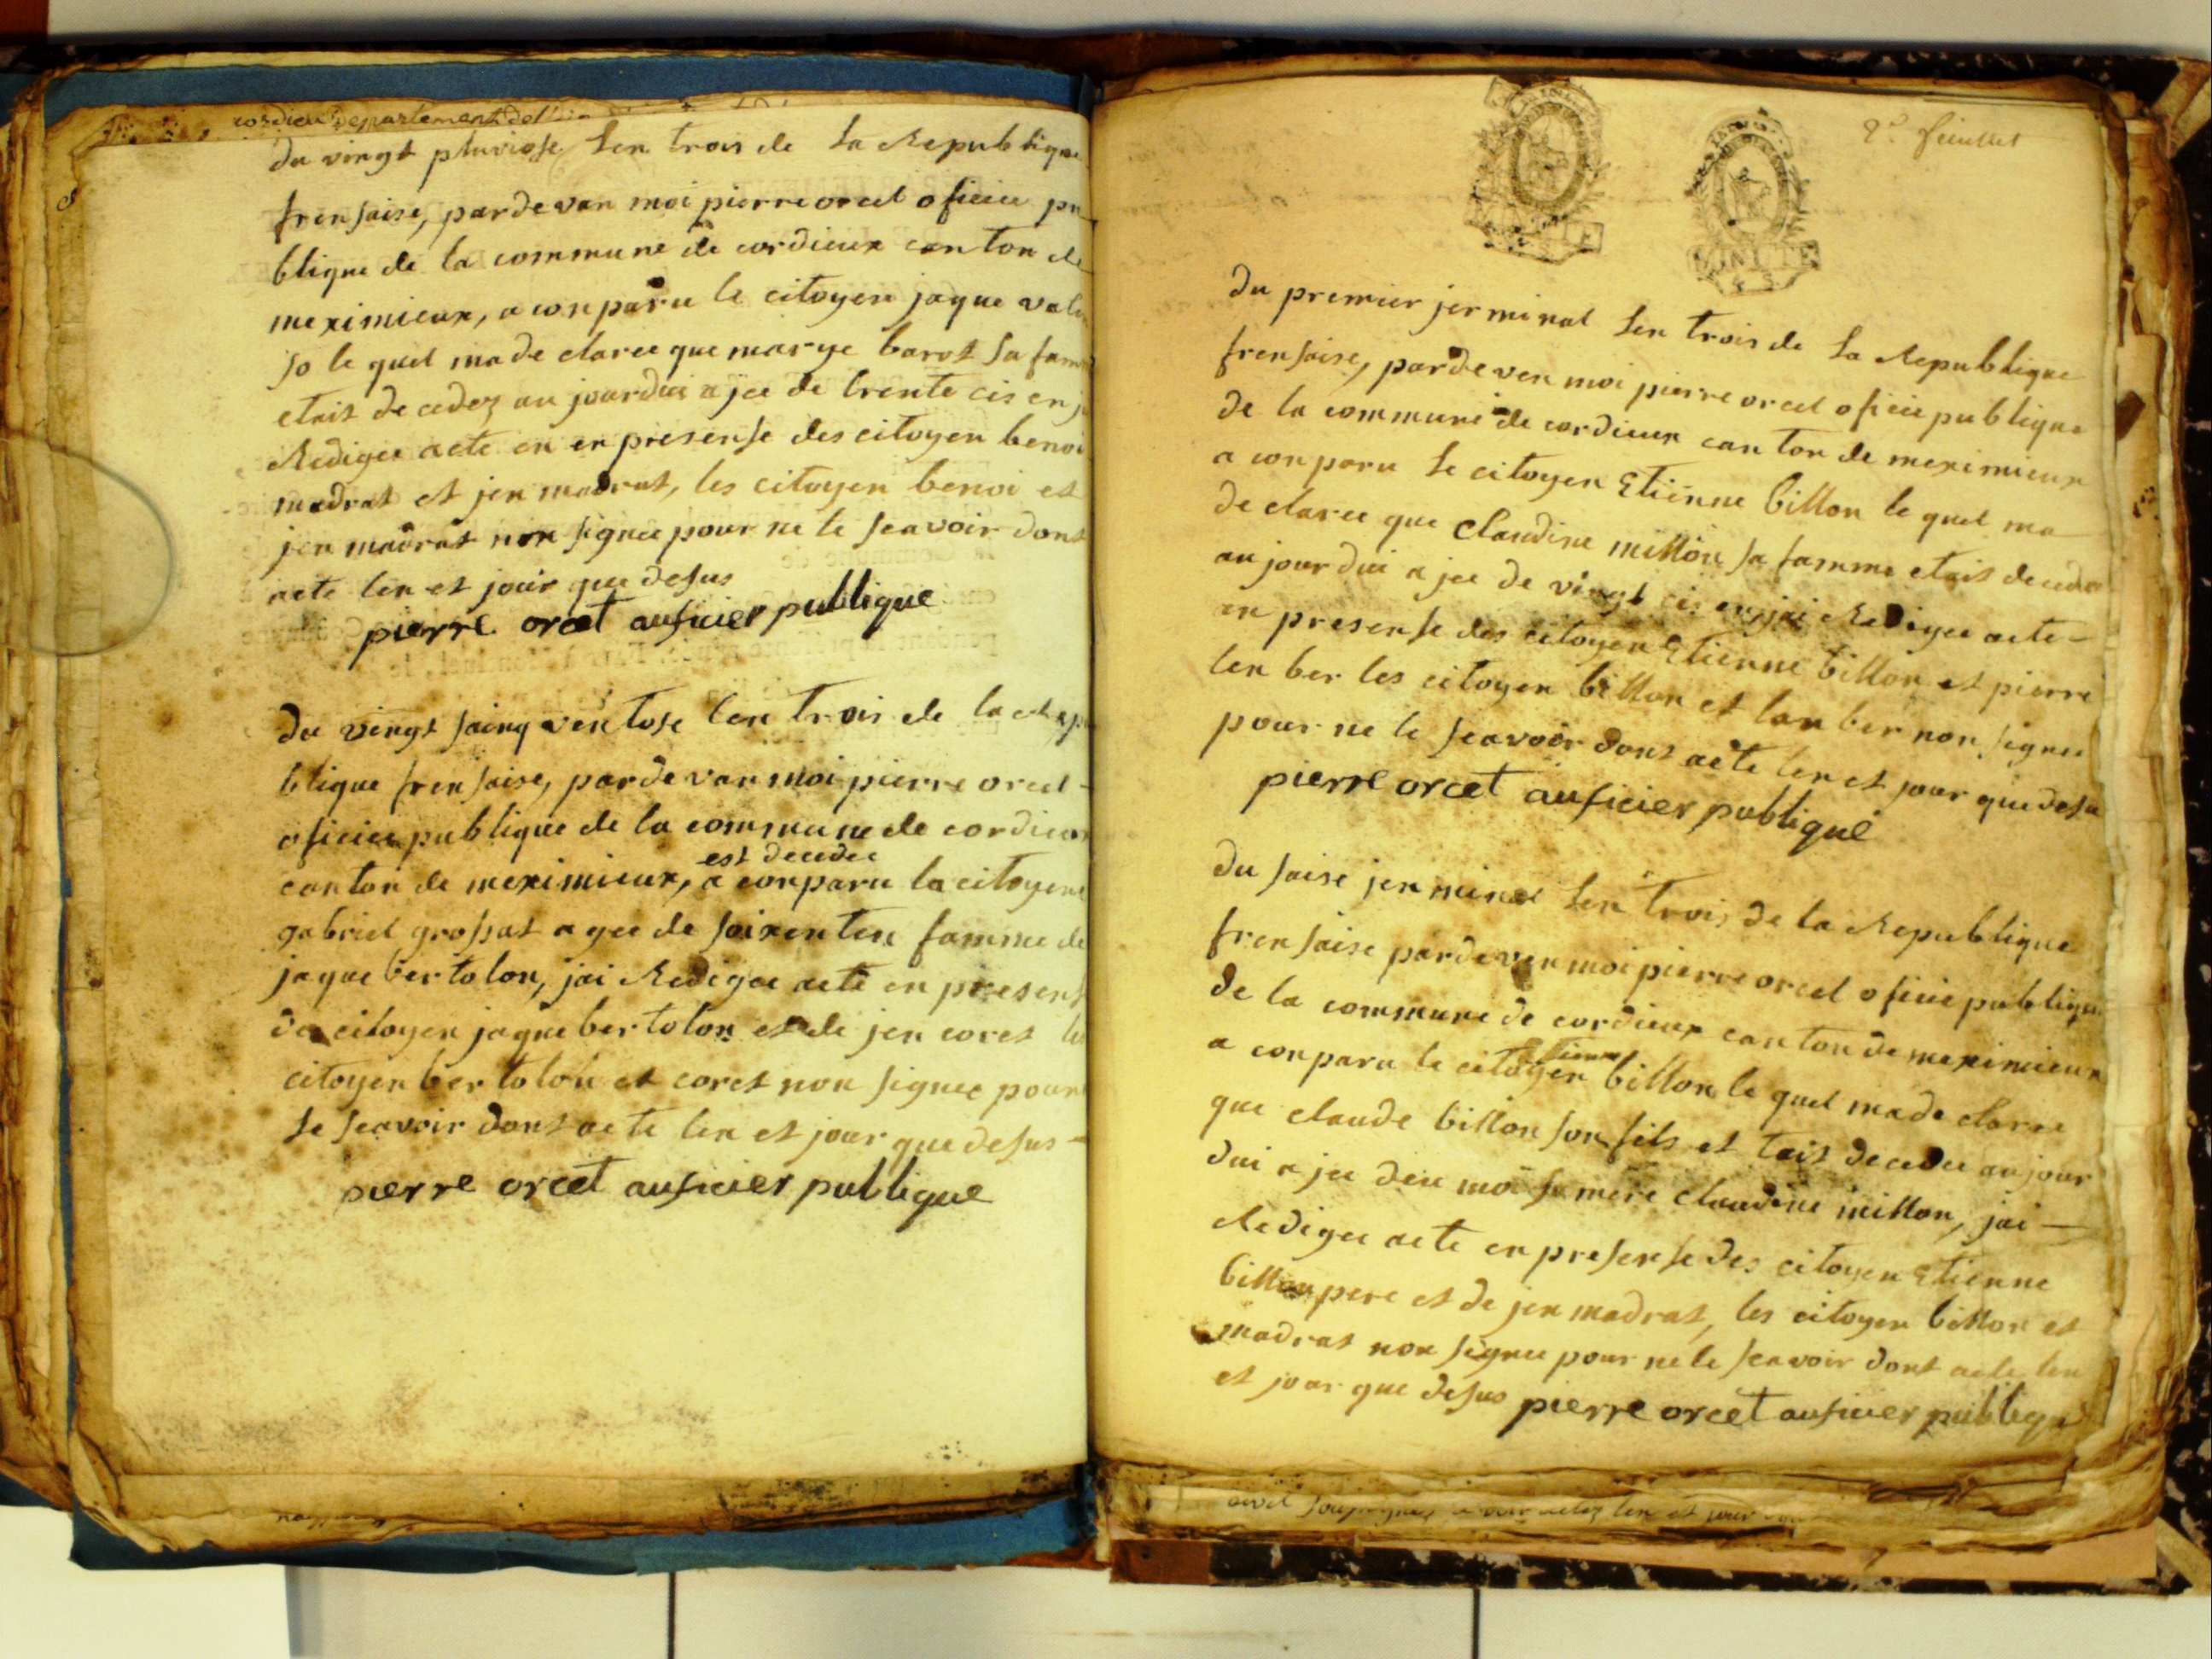 cordieu departement de l
du vingt pluviose Len trois de La Republique
frensaise, pardevan moi pierre orcel oficiee pu
blique de la commune de cordieux canton de
meximieux, a conparu le citoyen jaque val
so le quel ma de claree que marye barot sa fam
etait de cedez au jourdui a jee de trente cis en j
Redigee acte en en presense des citoyen benoi
madrat et jen madrat, les citoyen benoi et
jen madrat non signee pour ne le seavoir dont
acte len et jour que desus
pierre orcet auficier publique
du vingt sainq ventose len trois de la rep
blique frensaise, pardevan moi pierre orcel
oficiee publique de la commune de cordieu
est decedee
canton de meximieux, a conparu la citoyene
gabriel grossat a gee de soixenten famme de
jaque bertolon, jai Redigee acte en presens
de citoyen jaque bertolon et de jen coret le
citoyen bertolon et coret non signee pour
le seavoir dont acte len et jour que desus
pierre orcet auficier publique
2e feuillet
MINUTE
MINUTE
du premier jerminal Len trois de La Republique
frensaise, pardeven moi pierre orcel oficie publique
de la commune de cordieux canton de meximieux
a conparu Le citoyen Etienne billon le quel ma
de claree que Claudine millon sa famme etait decede
au jourdui a jee de vingt cis en, jai Redigee acte
en presense des citoyen Etienne billon et pierre
len ber les citoyen billon et lan ber non signee
pour ne le seavoir dont acte len et jour que desu
pierre orcet auficier publique
du saise jerminal Len trois de la Republique
frensaise pardeven moi pierre orcel oficie publique
de la commune de cordieux canton de meximieux
etienne
a conparu le citoyen billon le quel ma de claree
que claude billon son fils et tait decedee au jour
dui a jee deu moi sa mere claudine millon, jai
Redigee acte en presense des citoyen Etienne
billon pere et de jen madrat, les citoyen billon et
madrat non signee pour ne le seavoir dont acte len
et jour que desus pierre orcet auficier publique
len et jour